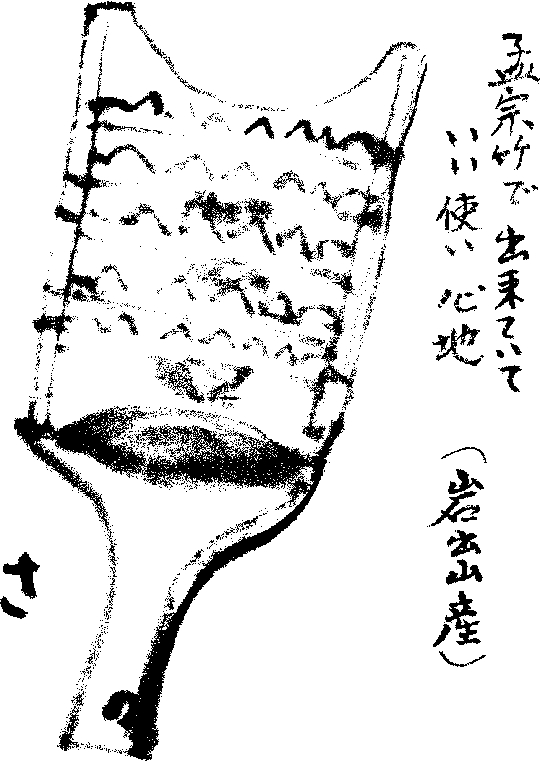 孟宗竹で出来ていて
いい使い心地
(岩出山産)
さ